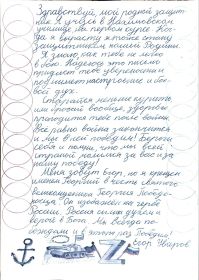 Здравствуй, мой родной защит-
ник. Я учусь в Нахимовском
училище на первом курсе. Ког-
да я вырасту, я тоже стану
защитником нашей Родины.
Я знаю как тебе не легко
в бою. Надеюсь это письмо
придаст тебе уверенности и
поднимет настроение и бое-
вой дух.
Старайся меньше курить,
или бросай вообще, здоровье
пригодится тебе после войны,
все равно война закончится
и мы в ней победим! Береги
себя и помни, что мы всей
страной молимся за вас и за
нашу победу!
Меня зовут Егор, но я крещен
именем Георгий в честь святого
великомученика Георгия Победо-
носца. Он изображен на гербе
России. Россия сильна духом и
верой в Бога. Мы всегда по-
беждали и в этот раз Победим!
Егор Уваров
Z